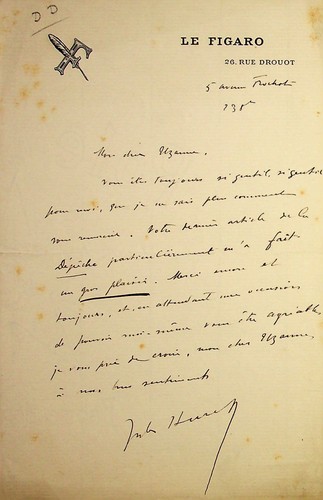 D D
LE FIGARO
26, RUE DROUOT
5 avenue Frochot
Mon cher Uzanne,
Vous êtes toujours si gentil, si gentil
pour moi, que je ne sais plus comment
vous remercier. Votre dernier article de la
Dépêche particulièrement m'a fait
un gros plaisir. Merci encore et
toujours, et, en attendant une occasion
de pouvoir moi-même vous être agréable,
je vous prie de croire, mon cher Uzanne,
à mes bons sentiments
Jules Huret